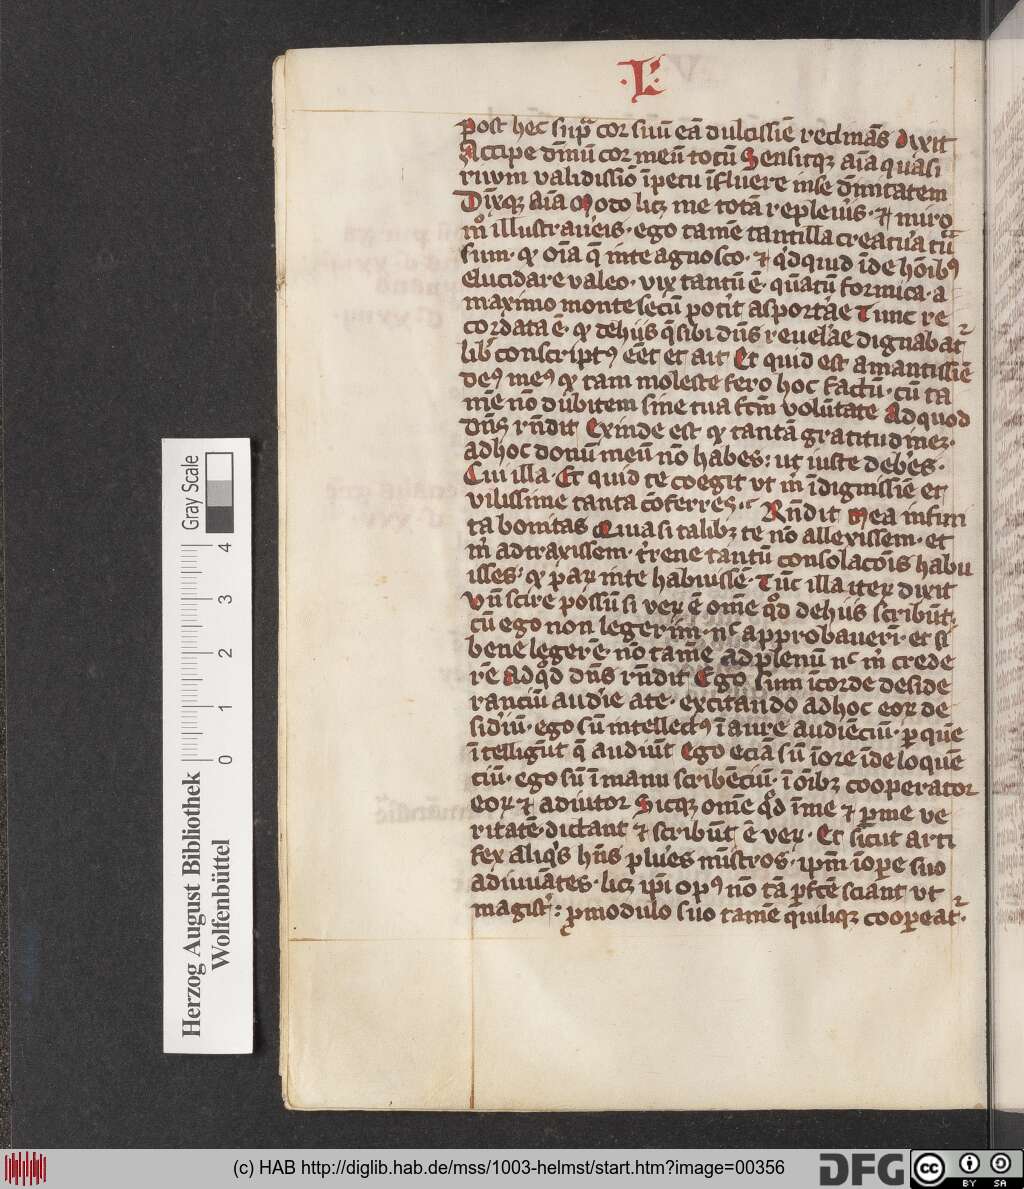 ·L·
Post hec sup̄ cor suū eā dulcissīe reclināns dixit
Accipe dīnū cor meū totū Sensitqꝫ aīa quasi
rivum validissiō īpetu īfluere inse dīuitatem
Dixꝫ aīa Modo licꝫ me totā repleuīs · ⁊ miro
mͦ illustraueīs · ego tamē tantilla creatura tuͣ
sum · ꝙ oīa q̄ inte agnosco · ⁊ qͥdquid īde hōibꝰ
elucidare valeo · vix tantū ē · qūatū formica · a
maximo monte secū poꞇit asportāe Tunc re
cordata ē · ꝙ dehijs q̄ sibi dūs reuelāe dignabat᷑
lib̄ conscriptꝰ eēt et ait Et quid est amantissīe
deꝰ meꝰ ꝙ tam moleste fero hoc factū · cū ta
mē nō dubitem sine tua fc̄m voluntate Ad quod
dn̄s rn̄dit Exinde est ꝙ tantā gratitudineꝫ ·
adhoc donū meū nō habes : ut iuste debes ·
Cui illa · Et quid te coegit vt m̄ īdignissīe et
vilissime tanta cōferres · Rn̄dit Mea infini
ta bonitas Quasi talibꝫ te nō allexissem · et
m̄ adtraxissem · t̄rene tantū consolacōis habu
isses · ꝙ paꝝ inte habuissē · Tūc illa iteꝝ dixit
Vn̄ scire possū si veꝝ ē omē qͦd dehijs scribūt ·
cū ego non legerim · nͨ approbaueri · et si
bene legerē · nō tamē adplenū nͨ m̄ crede
rē Adqͦd dn̄s rn̄dit Ego sum īcorde deside
ranciū audīe ate · excitando adhoc eoꝝ de
sidiū · ego sū intellectꝰ ī aure audiēciū · ꝑ quē
ītelligūt q̄ audiūt Ego eciā sū īore īde loquē
ciū · ego sū ī manu scribēciū · ī oībꝫ cooperator
eoꝝ ⁊ adiutor Sicqꝫ omē qͦd īme ⁊ ꝑme ve
ritatē dictant ⁊ scribūt ē veꝝ · Et sicut arti
fex aliqͥs hn̄s plues mīstros · ipm̄ īope suo
adiuuātes · licꝫ ip̄i opꝰ nō tā ꝑfc̄e sciant vt
magist᷑ : ꝓmodulo suo tamē quilibꝫ coopeat᷑ ·
Herzog August Bibliothek
Wolfenbüttel
0 1 2 3 4
Gray Scale
(c) HAB http://diglib.hab.de/mss/1003-helmst/start.htm?image=00356
DFG
cc BY SA